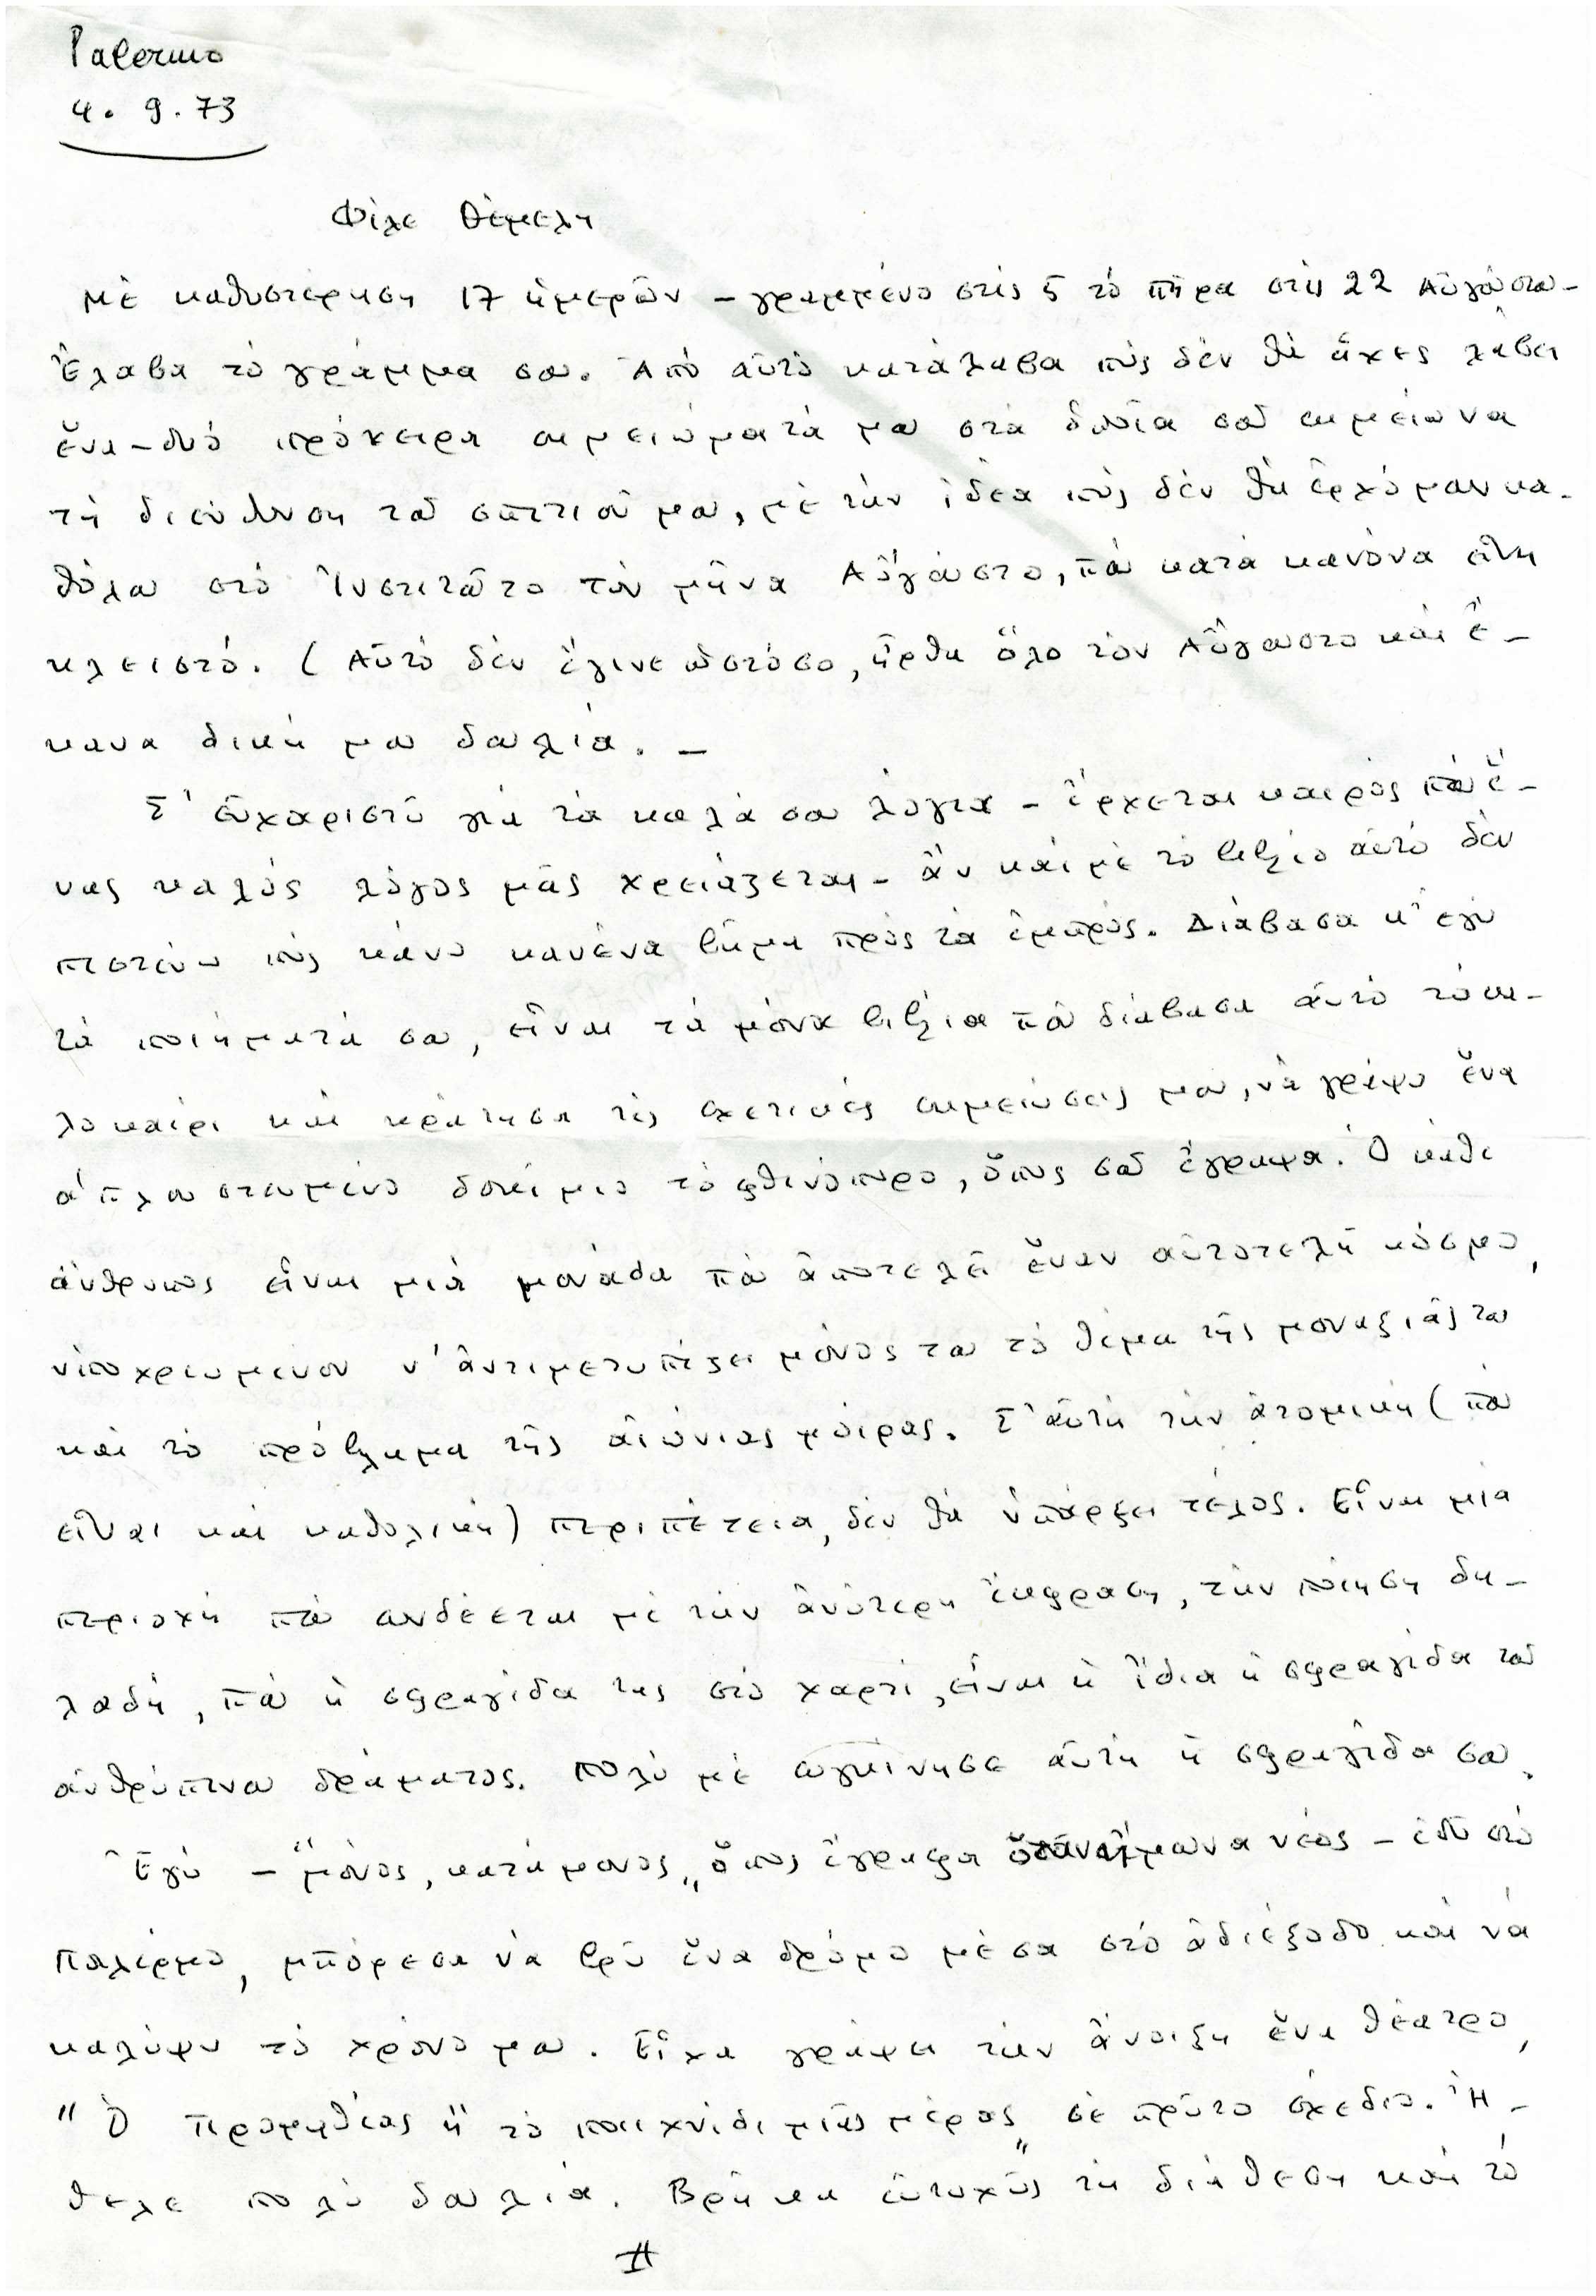 Palermo
4. 9. 73
Φίλε Θέμελη
Μὲ καθυστέρηση 17 ἡμερῶν – γραμμένο στὶς 5 τὸ πῆρα στὶς 22 Αὐγούστου –
ἔλαβα τὸ γράμμα σου. Ἀπὸ αὐτὸ κατάλαβα πὼς δὲν θὰ εἶχες λάβει
ἕνα–δυὸ πρόχειρα σημειώματά μου στὰ ὁποῖα σοῦ σημείωνα
τὴ διεύθυνση τοῦ σπιτιοῦ μου, μὲ τὴν ἰδέα πὼς δὲν θὰ ἐρχόμουν κα-
θόλου στὸ Ἰνστιτοῦτο τὸν μῆνα Αὔγουστο, ποὺ κατὰ κανόνα εἶναι
κλειστό. (Αὐτὸ δὲν ἔγινε ὡστόσο, ἦρθα ὅλο τὸν Αὔγουστο καὶ ἔ-
κανα δική μου δουλειά. –
Σ' εὐχαριστῶ γιὰ τὰ καλά σου λόγια – ἔρχεται καιρὸς ποὺ ἕ-
νας καλὸς λόγος μᾶς χρειάζεται – ἂν καὶ μὲ τὸ βιβλίο αὐτὸ δὲν
πιστεύω πὼς κάνω κανένα βῆμα πρὸς τὰ ἐμπρός. Διάβασα κ' ἐγὼ
τὰ ποιήματά σου, εἶναι τὰ μόνα βιβλία ποὺ διάβασα αὐτὸ τὸ κα-
λοκαίρι καὶ κράτησα τὶς σχετικὲς σημειώσεις μου, νὰ γράψω ἕνα
ἁπλουστευμένο δοκίμιο τὸ φθινόπωρο, ὅπως σοῦ ἔγραψα. Ὁ κάθε
ἄνθρωπος εἶναι μιὰ μονάδα ποὺ ἀποτελεῖ ἕναν αὐτοτελῆ κόσμο,
ὑποχρεωμένον ν' ἀντιμετωπίζει μόνος του τὸ θέμα τῆς μοναξιᾶς του
καὶ τὸ πρόβλημα τῆς αἰώνιας μοίρας. Σ' αὐτὴ τὴν ἀτομικὴ (ποὺ
εἶναι καὶ καθολικὴ) περιπέτεια, δὲν θὰ ὑπάρξει τέλος. Εἶναι μία
περιοχὴ ποὺ συνδέεται μὲ τὴν ἀνώτερη ἔκφραση, τὴν ποίηση δη-
λαδή, ποὺ ἡ σφραγίδα της στὸ χαρτί, εἶναι ἡ ἴδια ἡ σφραγίδα τοῦ
ἀνθρώπινου δράματος. Πολὺ μὲ συγκίνησε αὐτὴ ἡ σφραγίδα σου.
Ἐγὼ – "μόνος, κατάμονος", ὅπως ἔγραφα ὅταν ἤμουνα νέος – ἐδῶ στὸ
Παλέρμο, μπόρεσα νὰ βρῶ ἕνα δρόμο μέσα στὸ ἀδιέξοδο καὶ νὰ
καλύψω τὸ χρόνο μου. Εἶχα γράψει τὴν ἄνοιξη ἕνα θέατρο,
"Ὁ Προμηθέας ἢ τὸ παιχνίδι μιᾶς μέρας" σὲ πρῶτο σχέδιο. Ἤ-
θελε πολὺ δουλειά. Βρῆκα εὐτυχῶς τὴ διάθεση καὶ τὸ
II